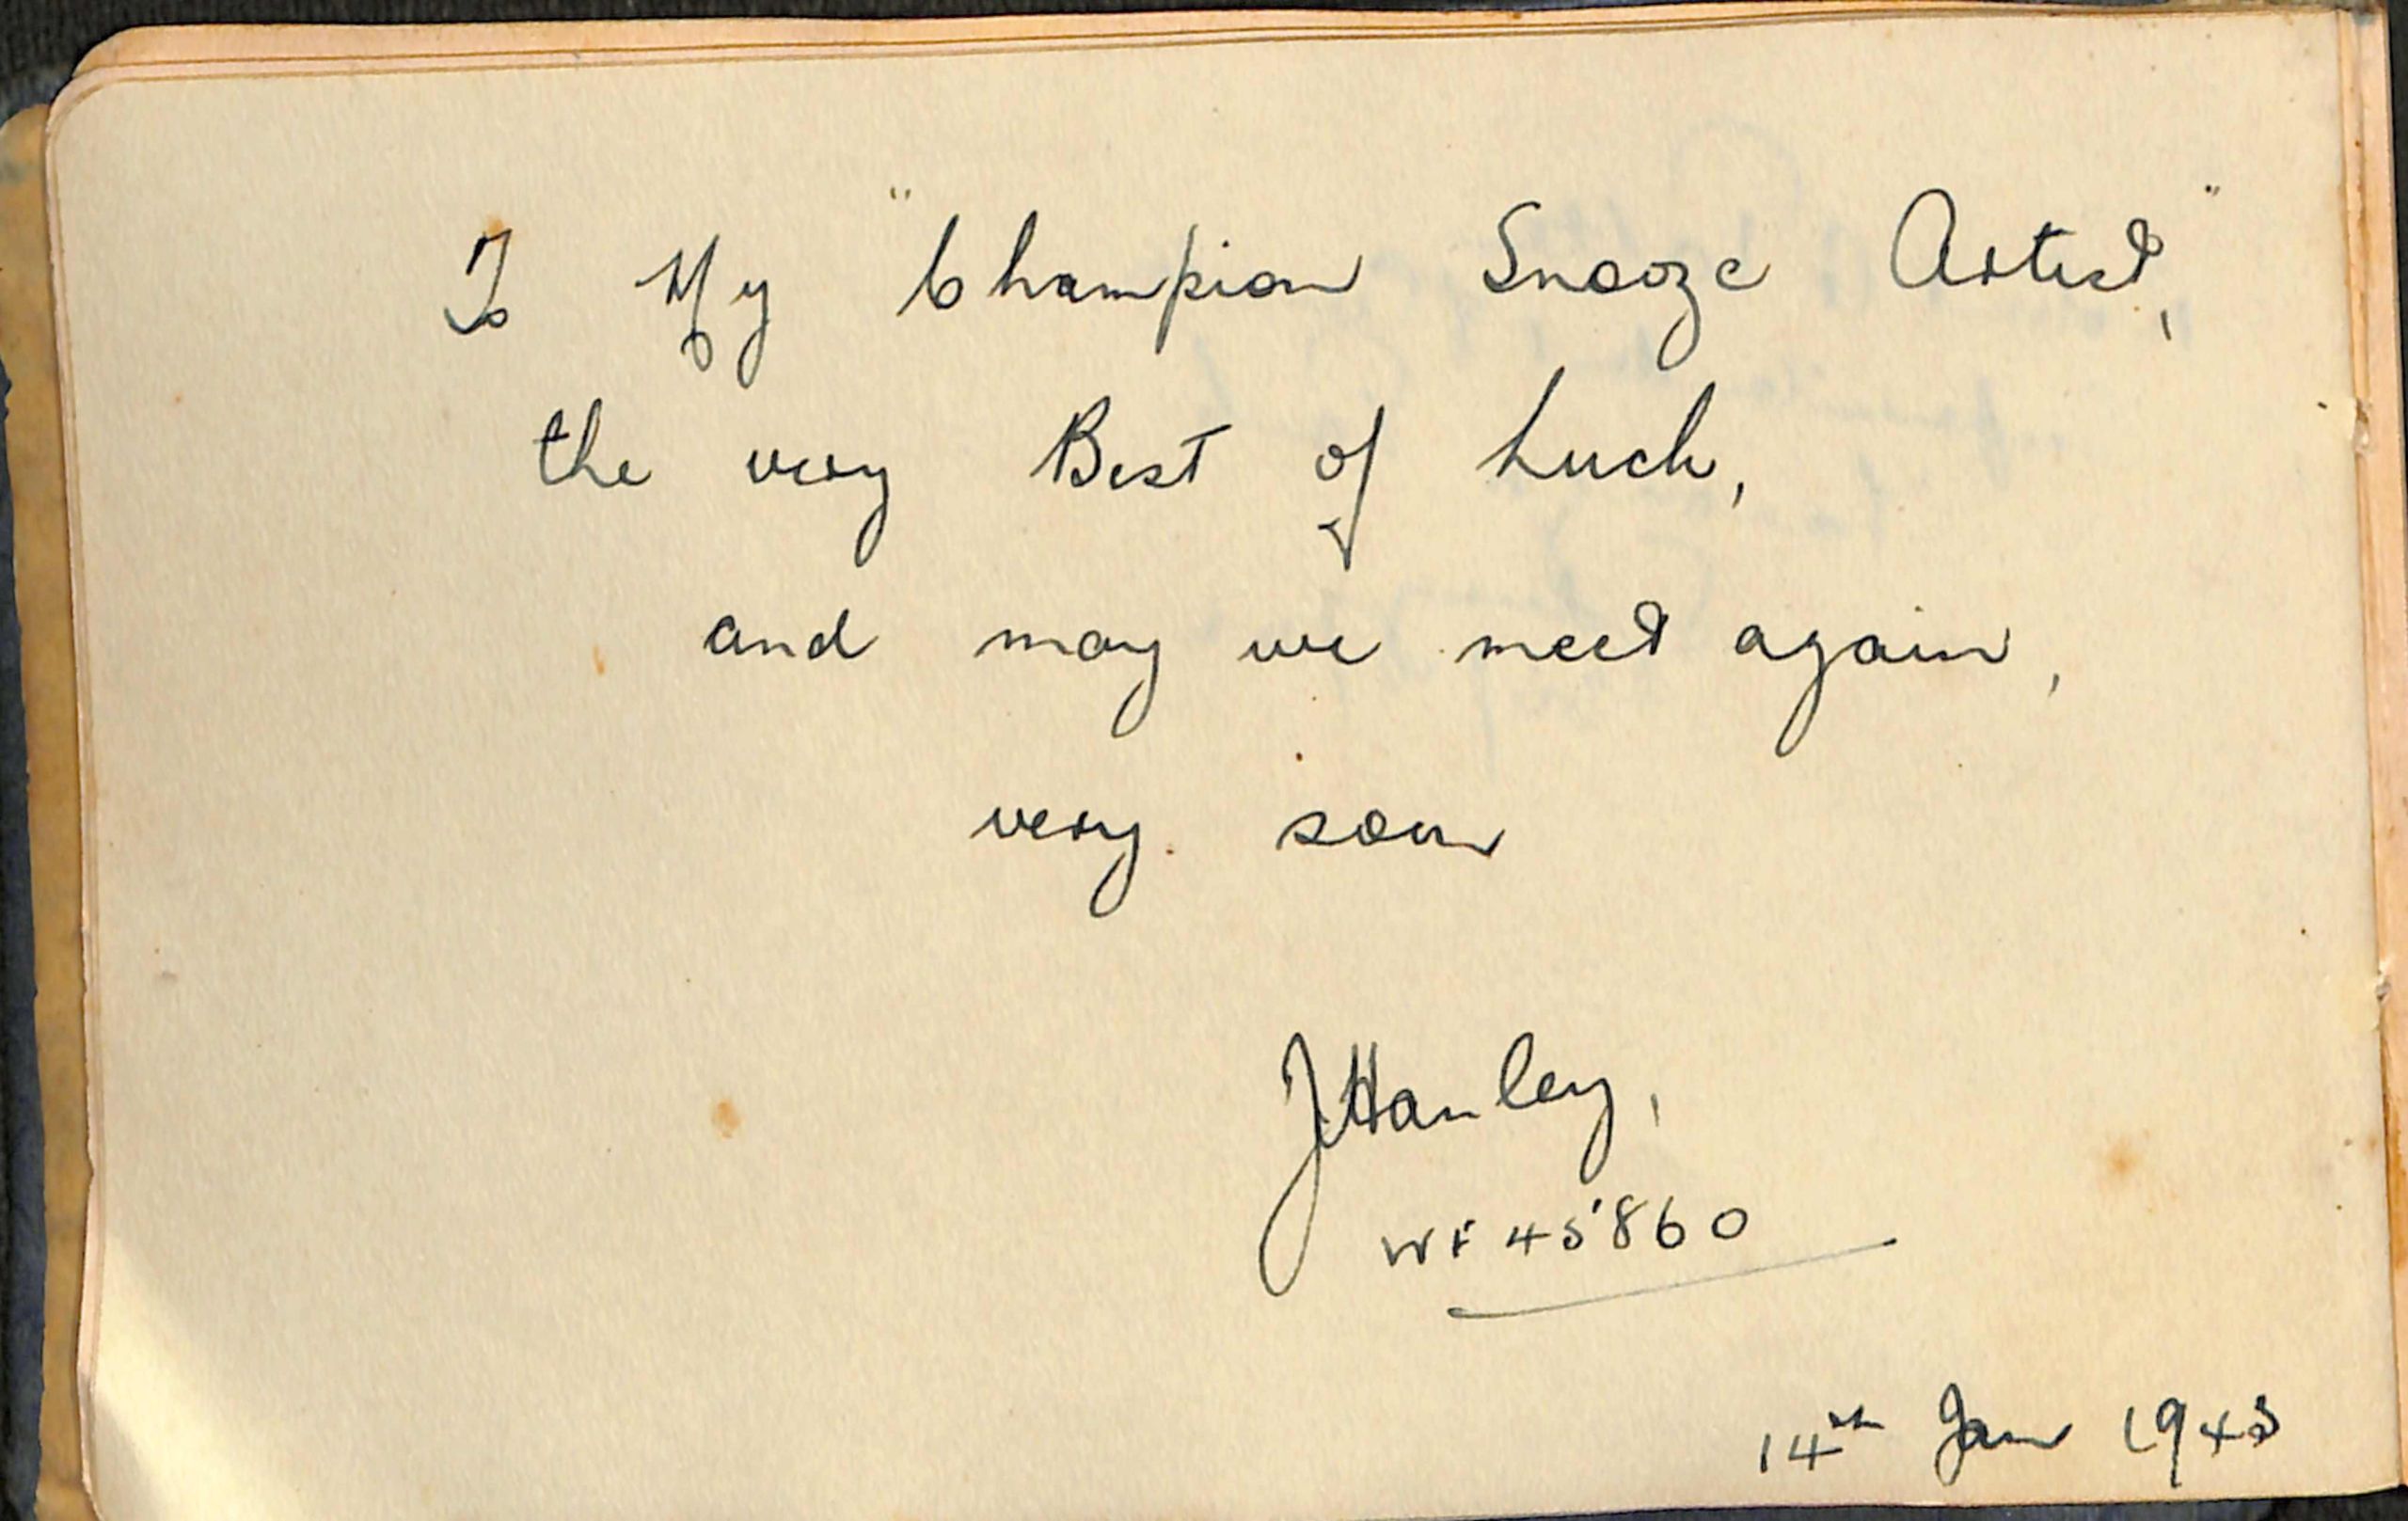 To My "Champion Snooze Artist,"
the very Best of Luck,
and may we meet again,
very soon
J Hanley,
WX 45860
14th Jan 1943